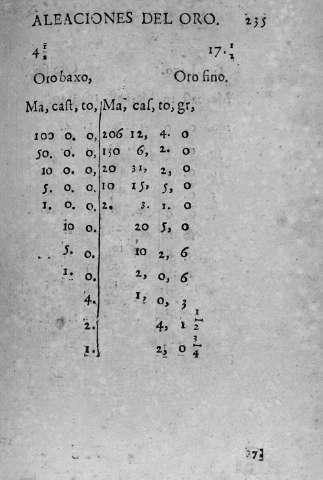 ALEACIONES DEL ORO. 235
4 1/2 17. 1/2
Oro baxo, Oro fino.
Ma, cast, to, Ma, cas, to, gr,
100 0. 0, 206 12, 4. 0
50. 0. 0, 130 6, 2. 0
10 0. 0, 20 31, 2, 0
5. 0. 0, 10 15, 5, 0
1. 0. 0, 2. 3. 1. 0
10 0. 20 5, 0
5. 0. 10 2, 6
1. 0. 2, 0, 6
4. 1, 0, 3
2. 4, 1 1/2
1. 2, 0 3/4